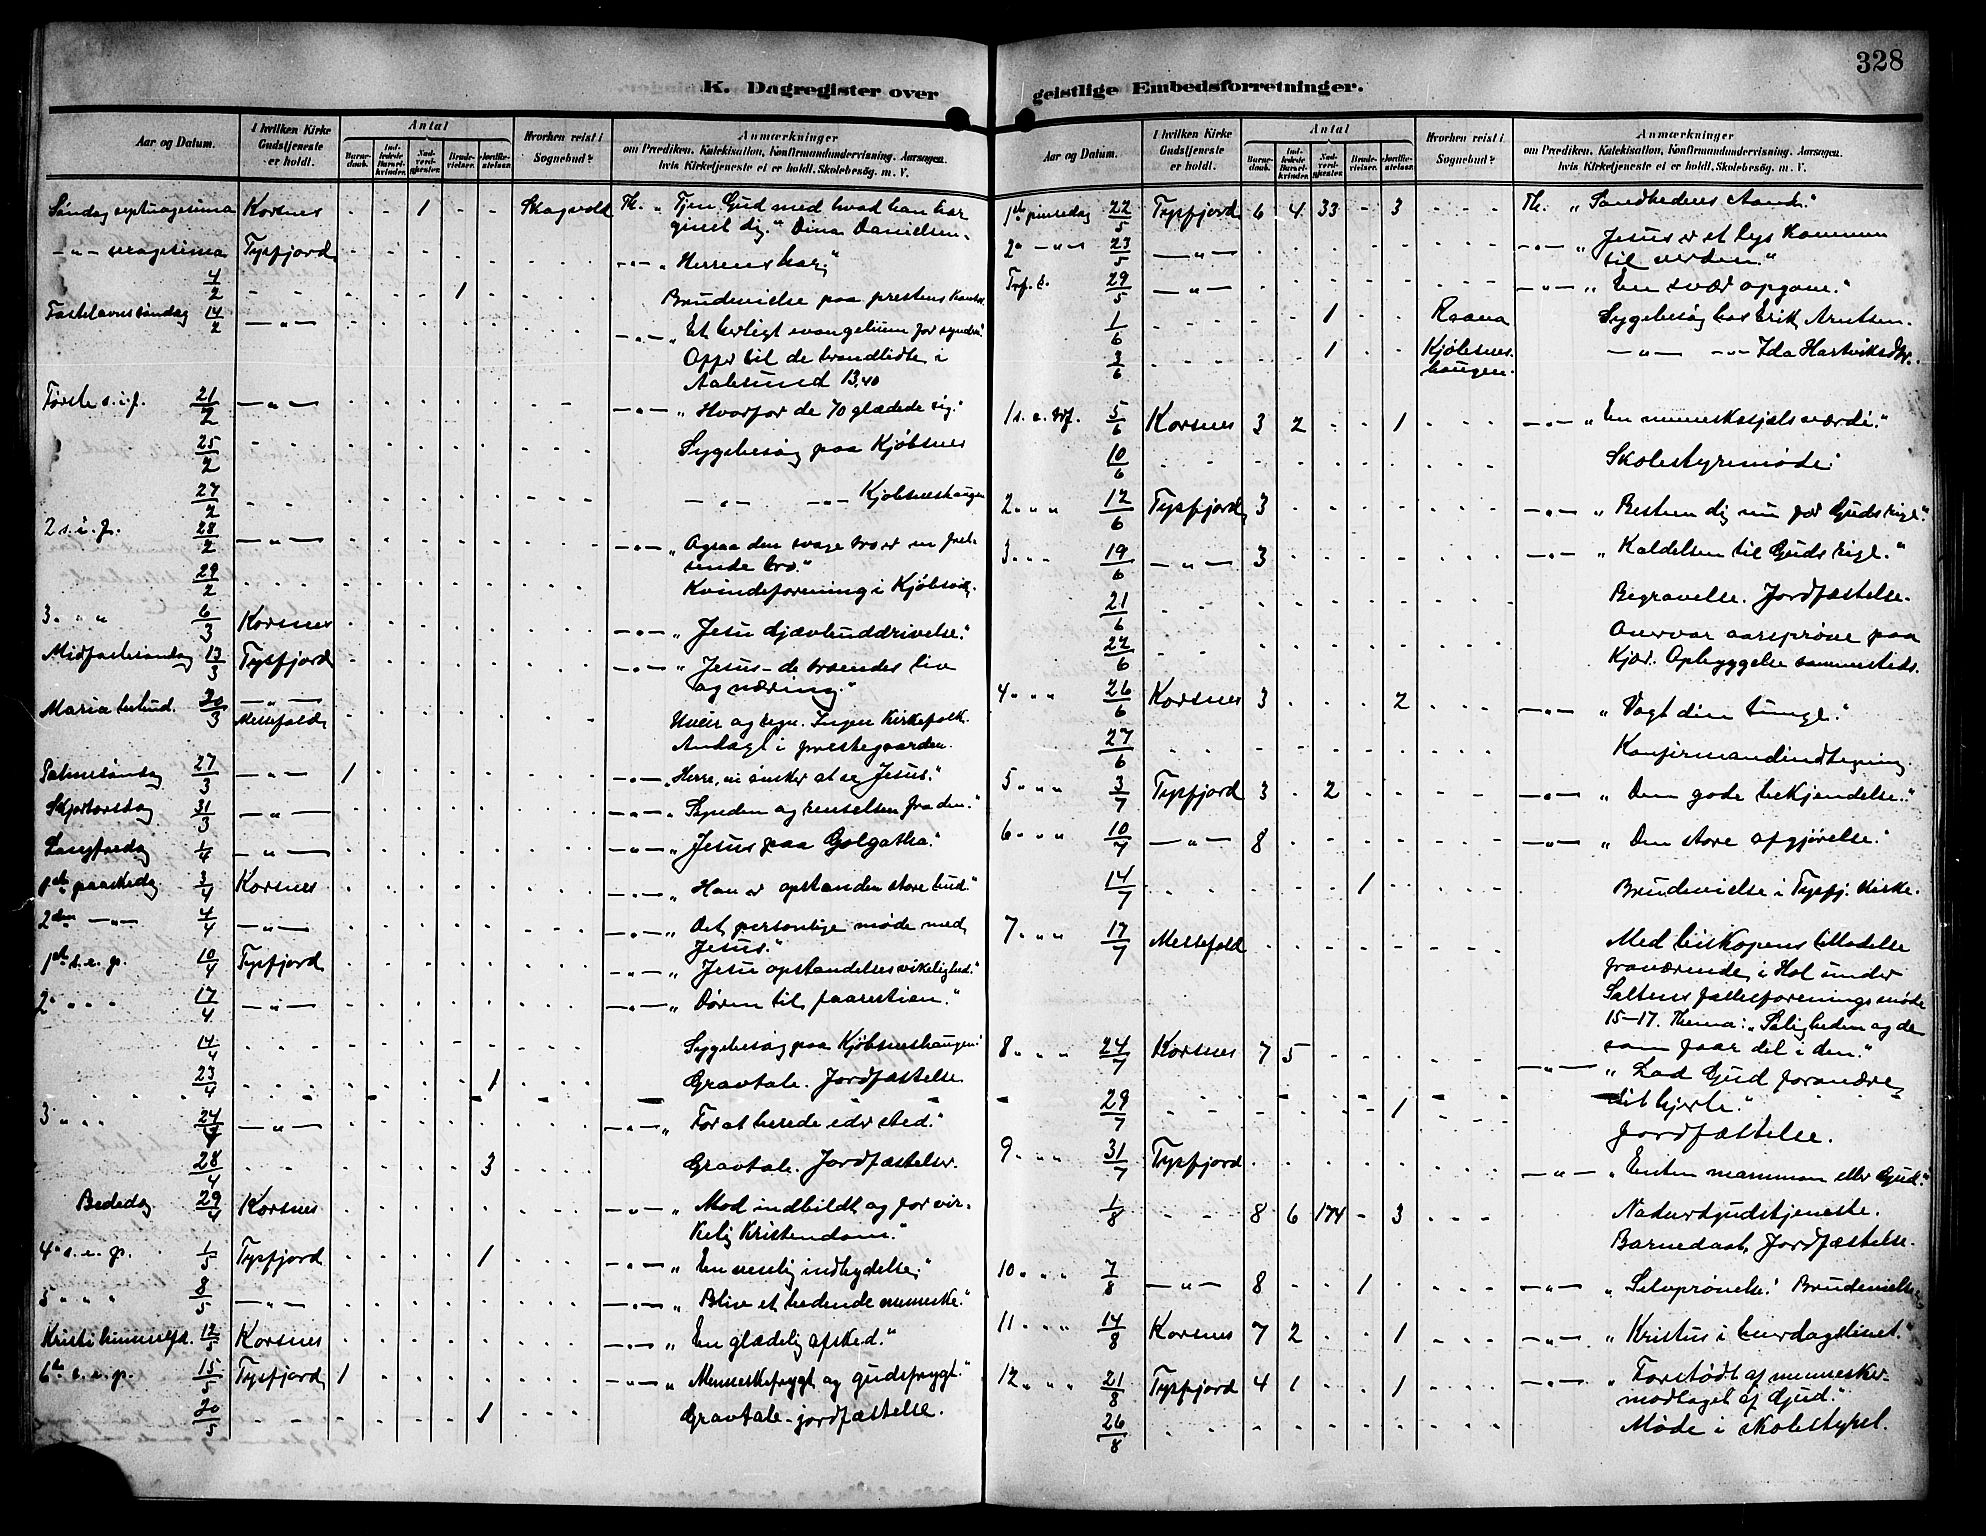 328
K. Dagregister over
Aar og Datum.
I hvilken Kirke Gudstjeneste er holdt.
Antal
Barnedaab.
Indledede Barselkvinder.
Nadverdgjester.
Brudevielser.
Jordfæstelser.
Hvorhen reist i Sognebud?
Anmærkninger
om Prædiken, Katekisation, Konfirmandundervisning, Aarsagen,
hvis Kirketjeneste ei er holdt, Skolebesøg m. V.
Søndag septuagesima Korsnes - - 1 - - Skagvold Th. „Tjen Gud med hvad han har
givet dig.“ Dina Danielsen.
-„- sexagesima Tysfjord -„- „Herrens har“
4/2 1 Brudevielse paa prestens kontor.
Fastelavnssøndag 14/2 -„- -„- „Et herligt evangelium for syndere“
Offer til de brandlidte i
Aalesund 13,40
Første s. i f. 21/2 -„- -„- „Hvorfor de 70 glædede sig.“
25/2 Sygebesøg paa Kjøbsnes
27/2 -„- -„- Kjøbsneshaugen
2 s. i f. 28/2 -„- -„- „Ogsaa den svage tro er en frel-
sende tro.“
29/2 Kvindeforening i Kjøbsvik.
3 „ „ 6/3 Korsnes -„- „Jesu djævleuddrivelse.“
Midfastesøndag 13/3 Tysfjord -„- „Jesus - de troendes liv
og næring.“
Maria bebud. 20/3 -„-
Messefald Uveir og regn. Ingen Kirkefolk.
Andagt i prestegaarden.
Palmesøndag 27/3 -„- 1 -„- „Herre, vi ønsker at se Jesus.“
Skjærtorsdag 31/3 -„- -„- „Synden og renselsen fra den.“
Langfredag 1/4 -„- -„- „Jesus paa Golgatha.“
1ste paaskedag 3/4 Korsnes -„- „Han er opstanden store bud.“
2den -„- 4/4 -„- -„- „Det personlige møde med
Jesus.“
1ste s. e. p. 10/4 Tysfjord -„- „Jesu opstandelses virkelighed.“
2. „ „ „ 17/4 -„- -„- „Døren til faarestien.“
14/4 Sygebesøg paa Kjøbsneshaugen
23/4 1 Gravtale. Jordfæstelse
3 „ „ „ 24/4 -„- -„- „For at berede eder sted.“
28/4 3 Gravtale. Jordfæstelser.
Bededag 29/4 Korsnes -„- „Mod indbildt og for vir-
kelig Kristendom.“
4. s. e. p. 1/5 Tysfjord 1 -„- „En venlig indbydelse“
5 „ „ „ 8/5 -„- -„- „Blive et bedende menneske.“
Kristi himmelfd. 12/5 Korsnes -„- „En glædelig afsked.“
6te s. e. p. 15/5 Tysfjord 1 -„- „Menneskefrygt og gudsfrygt.“
20/5 1 Gravtale - jordfæstelse.
geistlige Embedsforretninger.
Aar og Datum.
I hvilken Kirke Gudstjeneste er holdt.
Antal
Barnedaab.
Indledede Barselkvinder.
Nadverdgjester.
Brudevielser.
Jordfæstelser.
Hvorhen reist i Sognebud?
Anmærkninger
om Prædiken, Katekisation, Konfirmandundervisning, Aarsagen,
hvis Kirketjeneste ei er holdt, Skolebesøg m. V.
1ste pinsedag 22/5 Tysfjord 6 4 33 - 3 Th. „Sandhedens Aand“
2. -„- 23/5 -„- -„- „Jesus er et lys kommen
til verden.“
Tref. s. 29/5 -„- -„- „En svær opgave.“
1/6 1 Raana Sygebesøg hos Erik Arntsen.
3/6 1 Kjøbsnes-
haugen. -„- -„- Ida Hartviksdtr.
1 s. e. tref. 5/6 Korsnes 3 2 - - 1 -„- „En menneskesjæls værdi.“
10/6 Skolestyremøde.
2 „ „ 12/6 Tysfjord 3 -„- „Bestem dig nu for Guds rige.“
3 „ „ 19/6 -„- 3 -„- „Kaldelsen til Guds rige.“
21/6 Begravelse. Jordfæstelse.
22/6 Overvar aarsprøve paa
Kjær. Opbyggelse sammesteds.
4 „ „ 26/6 Korsnes 3 2 -„- „Vogt din tunge.“
27/6 Konfirmandindtegning.
5 „ „ 3/7 Tysfjord 3 - 2 -„- „Den gode bekjendelse.“
6 „ „ 10/7 -„- 8 -„- „Den store afgjørelse.“
14/7 1 Brudevielse i Tysfj. kirke.
7 „ „ 17/7 Messefald Med biskopens tilladelse
fraværende i Hol under
Saltens fællesforenings møde
15-17. Thema: „Saligheden og de
som faar del i den.“
8 „ „ 24/7 Korsnes 7 5 -„- „Lad Gud forandre
dit hjerte.“
29/7 1 Jordfæstelse.
9 „ „ 31/7 Tysfjord -„- „Enten mammon eller Gud.“
1/8 8 6 174 - 3 Naturgudstjeneste.
Barnedaab, Jordfæstelse.
10 „ „ 7/8 -„- 8 - - 1 -„- „Selvprøvelse! Brudevielse
11 „ „ 14/8 Korsnes 7 2 - - 1 -„- „Kristus i hverdagslivet.“
12 „ „ 21/8 Tysfjord 4 1 - - 1 „Forstødt af mennesker-
modtaget af Gud.“
26/8 Møde i skolestyret.